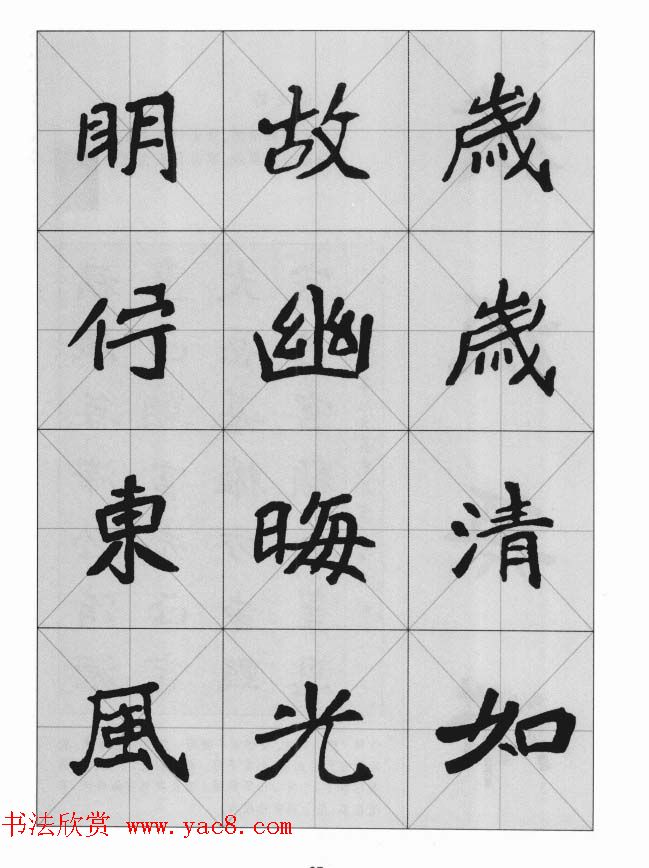 嵗嵗清如
故幽晦光
眀佇東風
书法欣赏 www.yac8.com